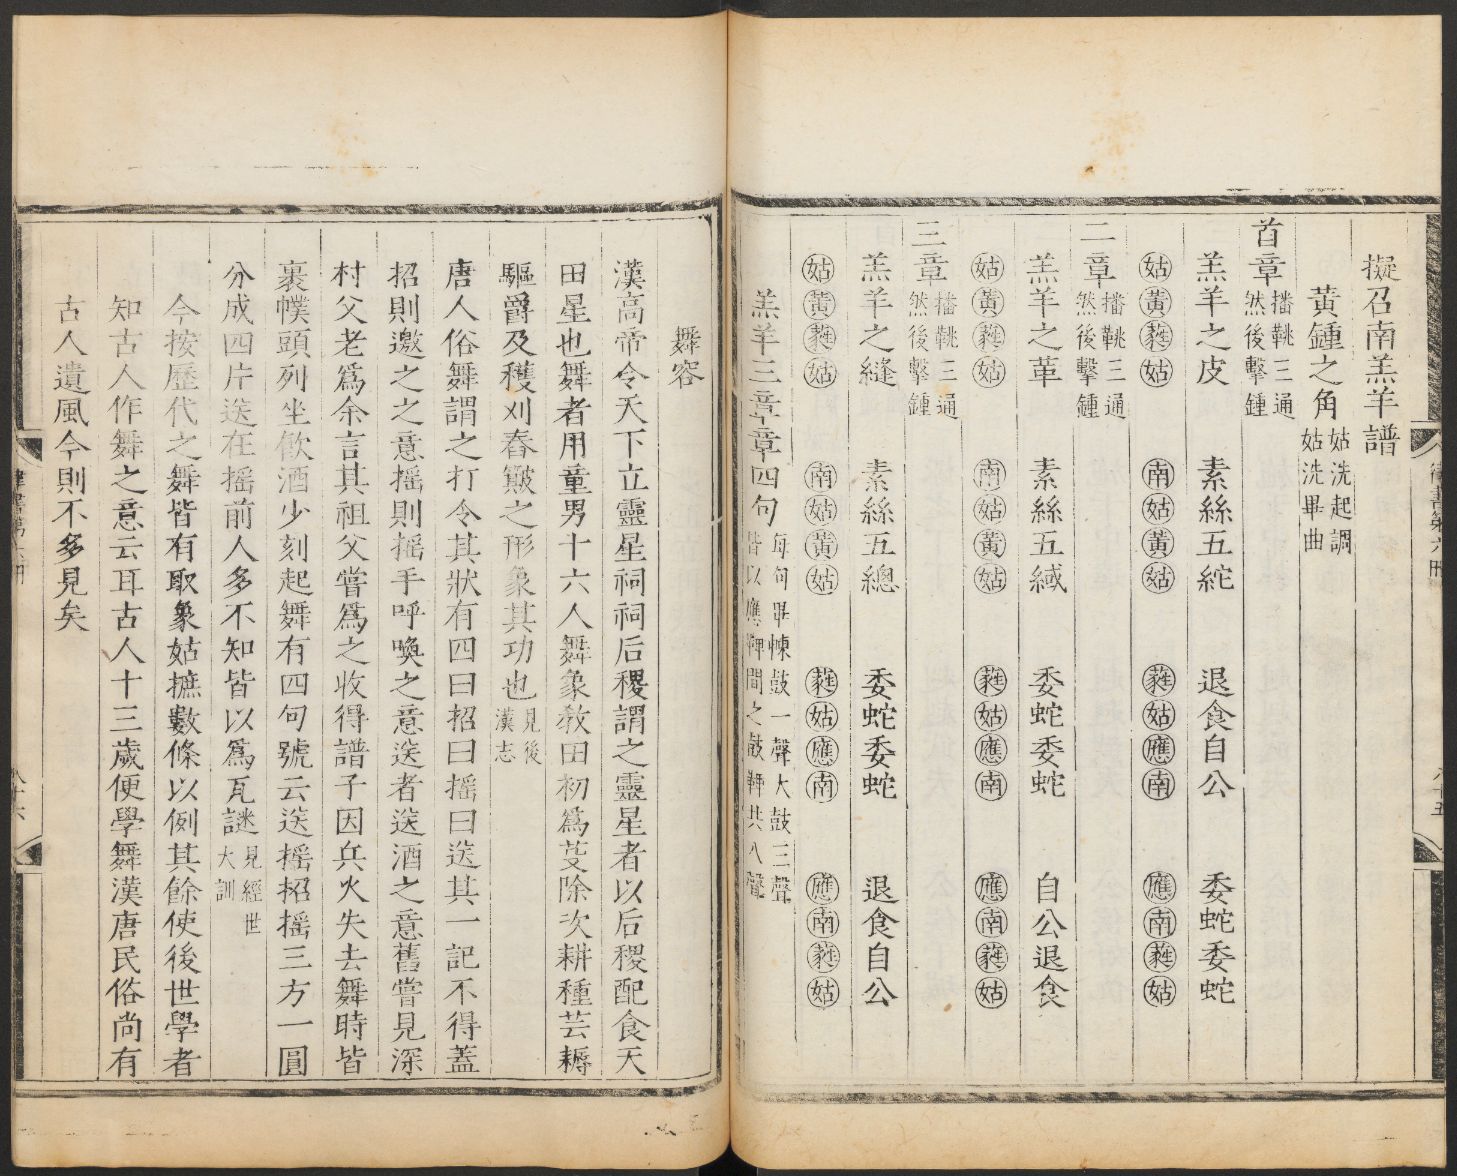 擬召南羔羊譜
黃鍾之角姑洗起調
姑洗畢曲
首章播鞉三通
然後擊鍾
羔羊之皮 素絲五紽 退食自公 委蛇委蛇
姑黃蕤姑 南姑黃姑 蕤姑應南 應南蕤姑
二章播鞉三通
然後擊鍾
羔羊之革 素絲五緎 委蛇委蛇 自公退食
姑黃蕤姑 南姑黃姑 蕤姑應南 應南蕤姑
三章播鞉三通
然後擊鍾
羔羊之縫 素絲五總 委蛇委蛇 退食自公
姑黃蕤姑 南姑黃姑 蕤姑應南 應南蕤姑
羔羊三章章四句每句畢㯥鼓一聲大鼓三聲
皆以應鞞間之鼓鞞共八聲
八十五
舞容
漢高帝令天下立靈星祠祠后稷謂之靈星者以后稷配食天
田星也舞者用童男十六人舞象教田初爲芟除次耕種芸耨
驅爵及穫刈舂簸之形象其功也見後
漢志
唐人俗舞謂之打令其狀有四曰招曰搖曰送其一記不得蓋
招則邀之之意搖則搖手呼喚之意送者送酒之意舊嘗見深
村父老爲余言其祖父嘗爲之收得譜子因兵火失去舞時皆
裹幞頭列坐飮酒少刻起舞有四句號云送搖招搖三方一圓
分成四片送在搖前人多不知皆以爲瓦謎見經世
大訓
今按歷代之舞皆有取象姑摭數條以例其餘使後世學者
知古人作舞之意云耳古人十三歲便學舞漢唐民俗尚有
古人遺風今則不多見矣
八十六